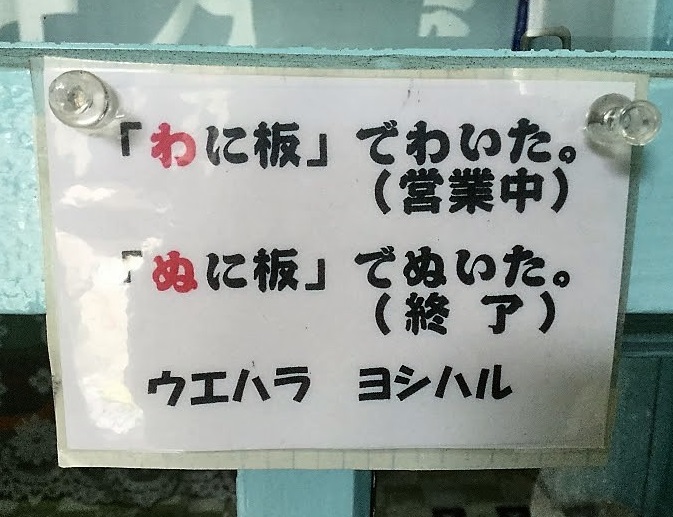 「わに板」でわいた。
（営業中）
「ぬに板」でぬいた。
（終 了）
ウエハラ ヨシハル